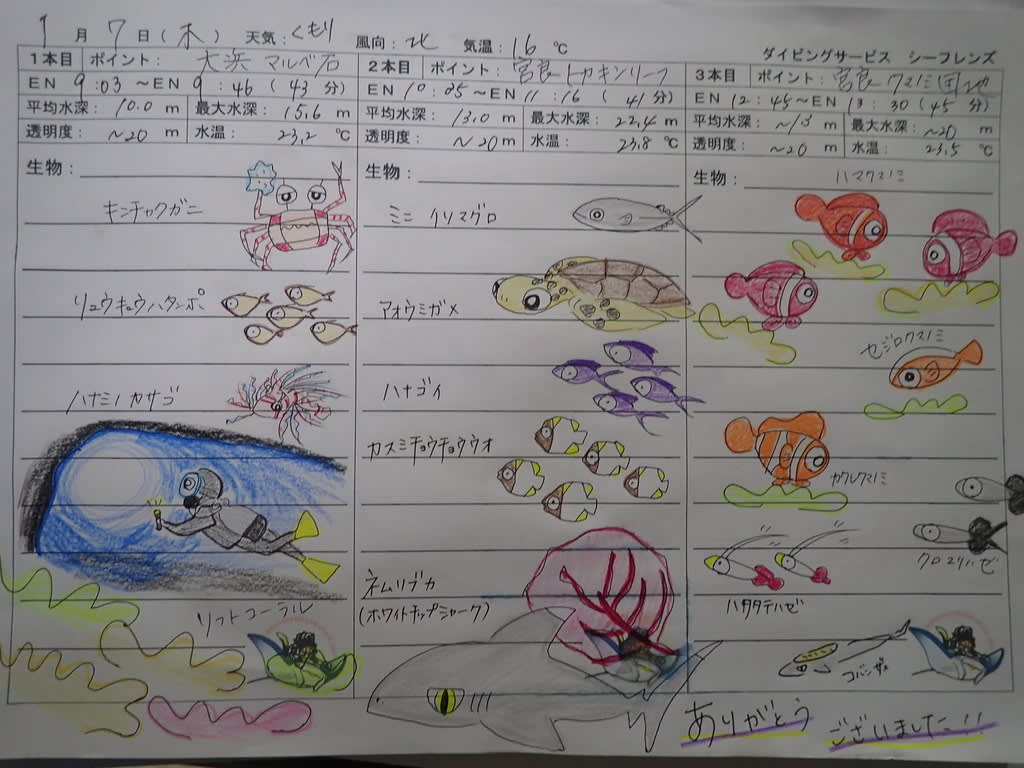 1月7日(木) 天気:くもり 風向:北 気温:16℃
ダイビングサービス シーフレンズ
1本目 ポイント: 大浜 マルベ石
EN 9:03～EN 9:46(43分)
平均水深: 10.0 m 最大水深: 15.6 m
透明度: ~20 m 水温: 23.2 ℃
生物:
キンチャクガニ
リュウキュウハタンポ
ハナミノカサゴ
ソフトコーラル
2本目 ポイント: 宮良トカキンリーフ
EN 10:35～EN 11:16(41分)
平均水深: 13.0 m 最大水深: 22.4 m
透明度: ~20 m 水温: 23.8 ℃
生物:
ミニイソマグロ
アオウミガメ
ハナゴイ
カスミチョウチョウウオ
ネムリブカ
(ホワイトチップシャーク)
3本目 ポイント: 宮良 クマノミ団地
EN 12:45～EN 13:30(45分)
平均水深: ~13 m 最大水深: ~20 m
透明度: ~20 m 水温: 23.5 ℃
生物: ハマクマノミ
セジロクマノミ
カクレクマノミ
クロユリハゼ
ハタタテハゼ
コバンザメ
ありがとう
ございました!!